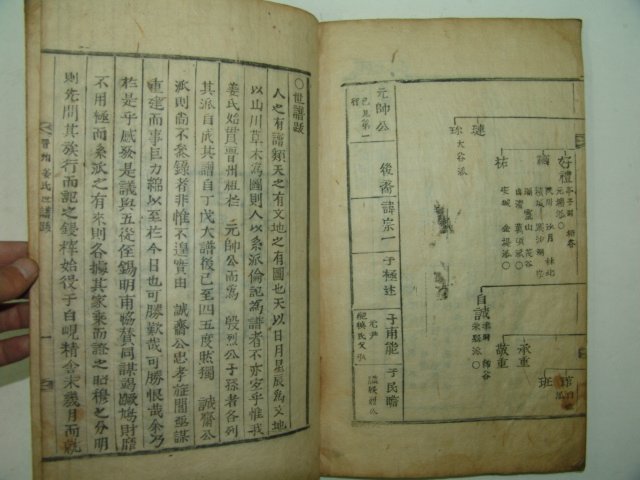 元帥公
已見第一
後裔
諱宗一
子極述
子甫能
子民瞻
璉
大谷派
祐
好禮
自誠
承重
敬重
班
○世譜跋
人之有譜類天之有文地之有圖也天以日月星辰為文地
以山川草木為圖則人以系派倫記為譜者不亦宜乎惟我
姜氏始貫晋州祖於 元帥公而為 殷烈公子孫者各列
其派自成其譜自丁戊大譜後已至四五度然獨 誠齋公
派則尚不參錄者非惟不遑實由 誠齋公忠孝旌閭亟謀
重建而事巨力綿以至於今日也可勝歎哉可勝恨哉余乃
於是乎感發是議與五從侄錫明甫協贊同謀竭蹶鳩財靡
不用極而系派之有來則各據其家乘而證之昭穆之分明
則先問其族行而記之鋟梓始役于白峴精舍未幾月而就
晋州姜氏世譜跋
一